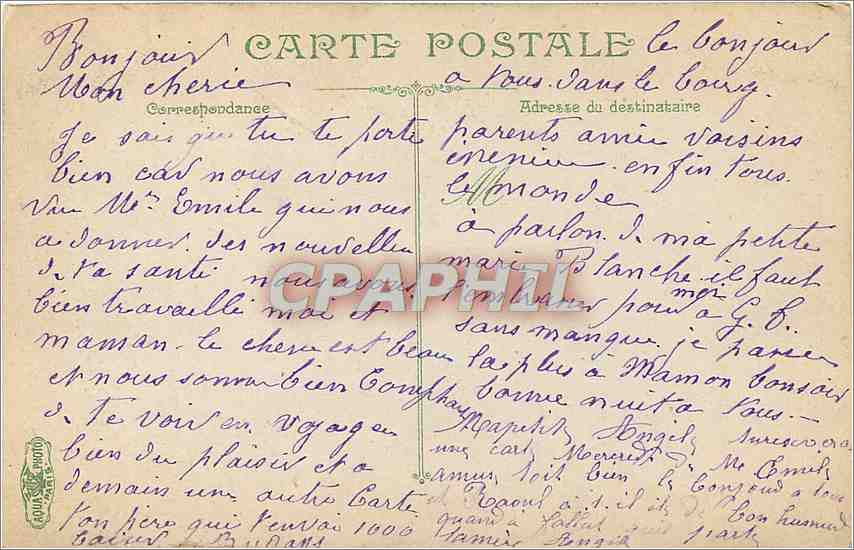 CARTE POSTALE
Correspondance
Bonjour
Mon cherie
Je sais que tu te porte
bien car nous avons
vu Mr Emile qui nous
a donner des nouvelles
de ta santé nous avons
bien travaillé moi et
maman le chere est beau
et nous somme bien
de te voir en voyage
bien du plaisir et a
demain une autre Carte
ton pere qui t'envoi 1000
Baiser
Adresse du destinataire
le bonjour
a vous dans le bourg
parents amie voisins
enfin tous
le monde
à parlon de ma petite
marie Blanche il faut
l'embrasser pour moi a G. E.
sans manque je pense
la plus à Maman bonsoir
bonne nuit a vous
Mapetite Angele
une carte Mercredi Mr Emile
soit bien le bonjour a tous
et Raoul a bon humeur
quand a
Angèle
CPAPHIL
AQUA PHOTO
PARIS